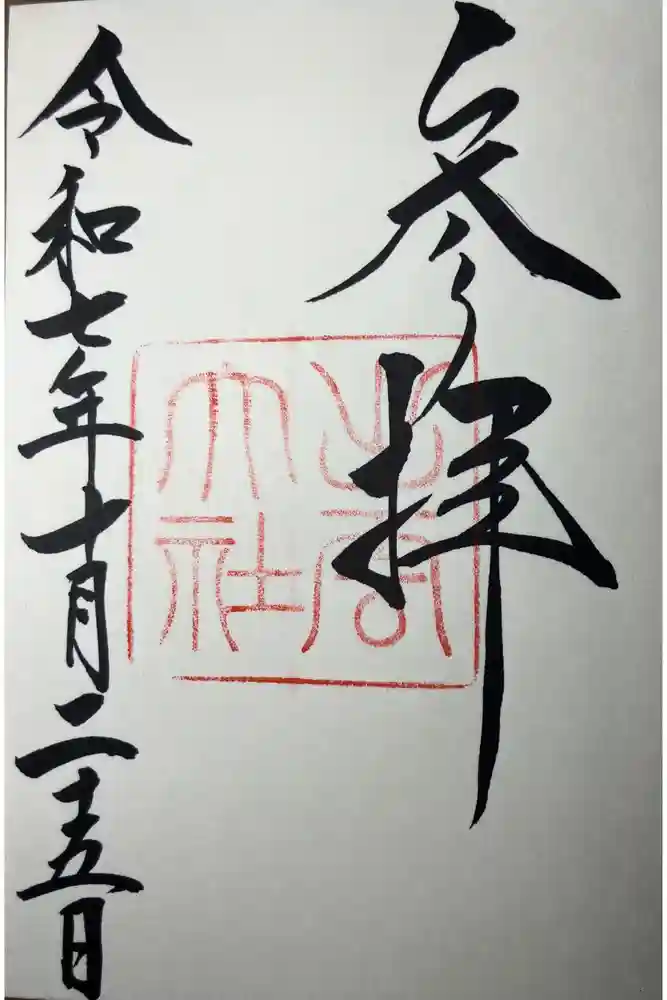 参拝
大社
令和七年十月二十五日